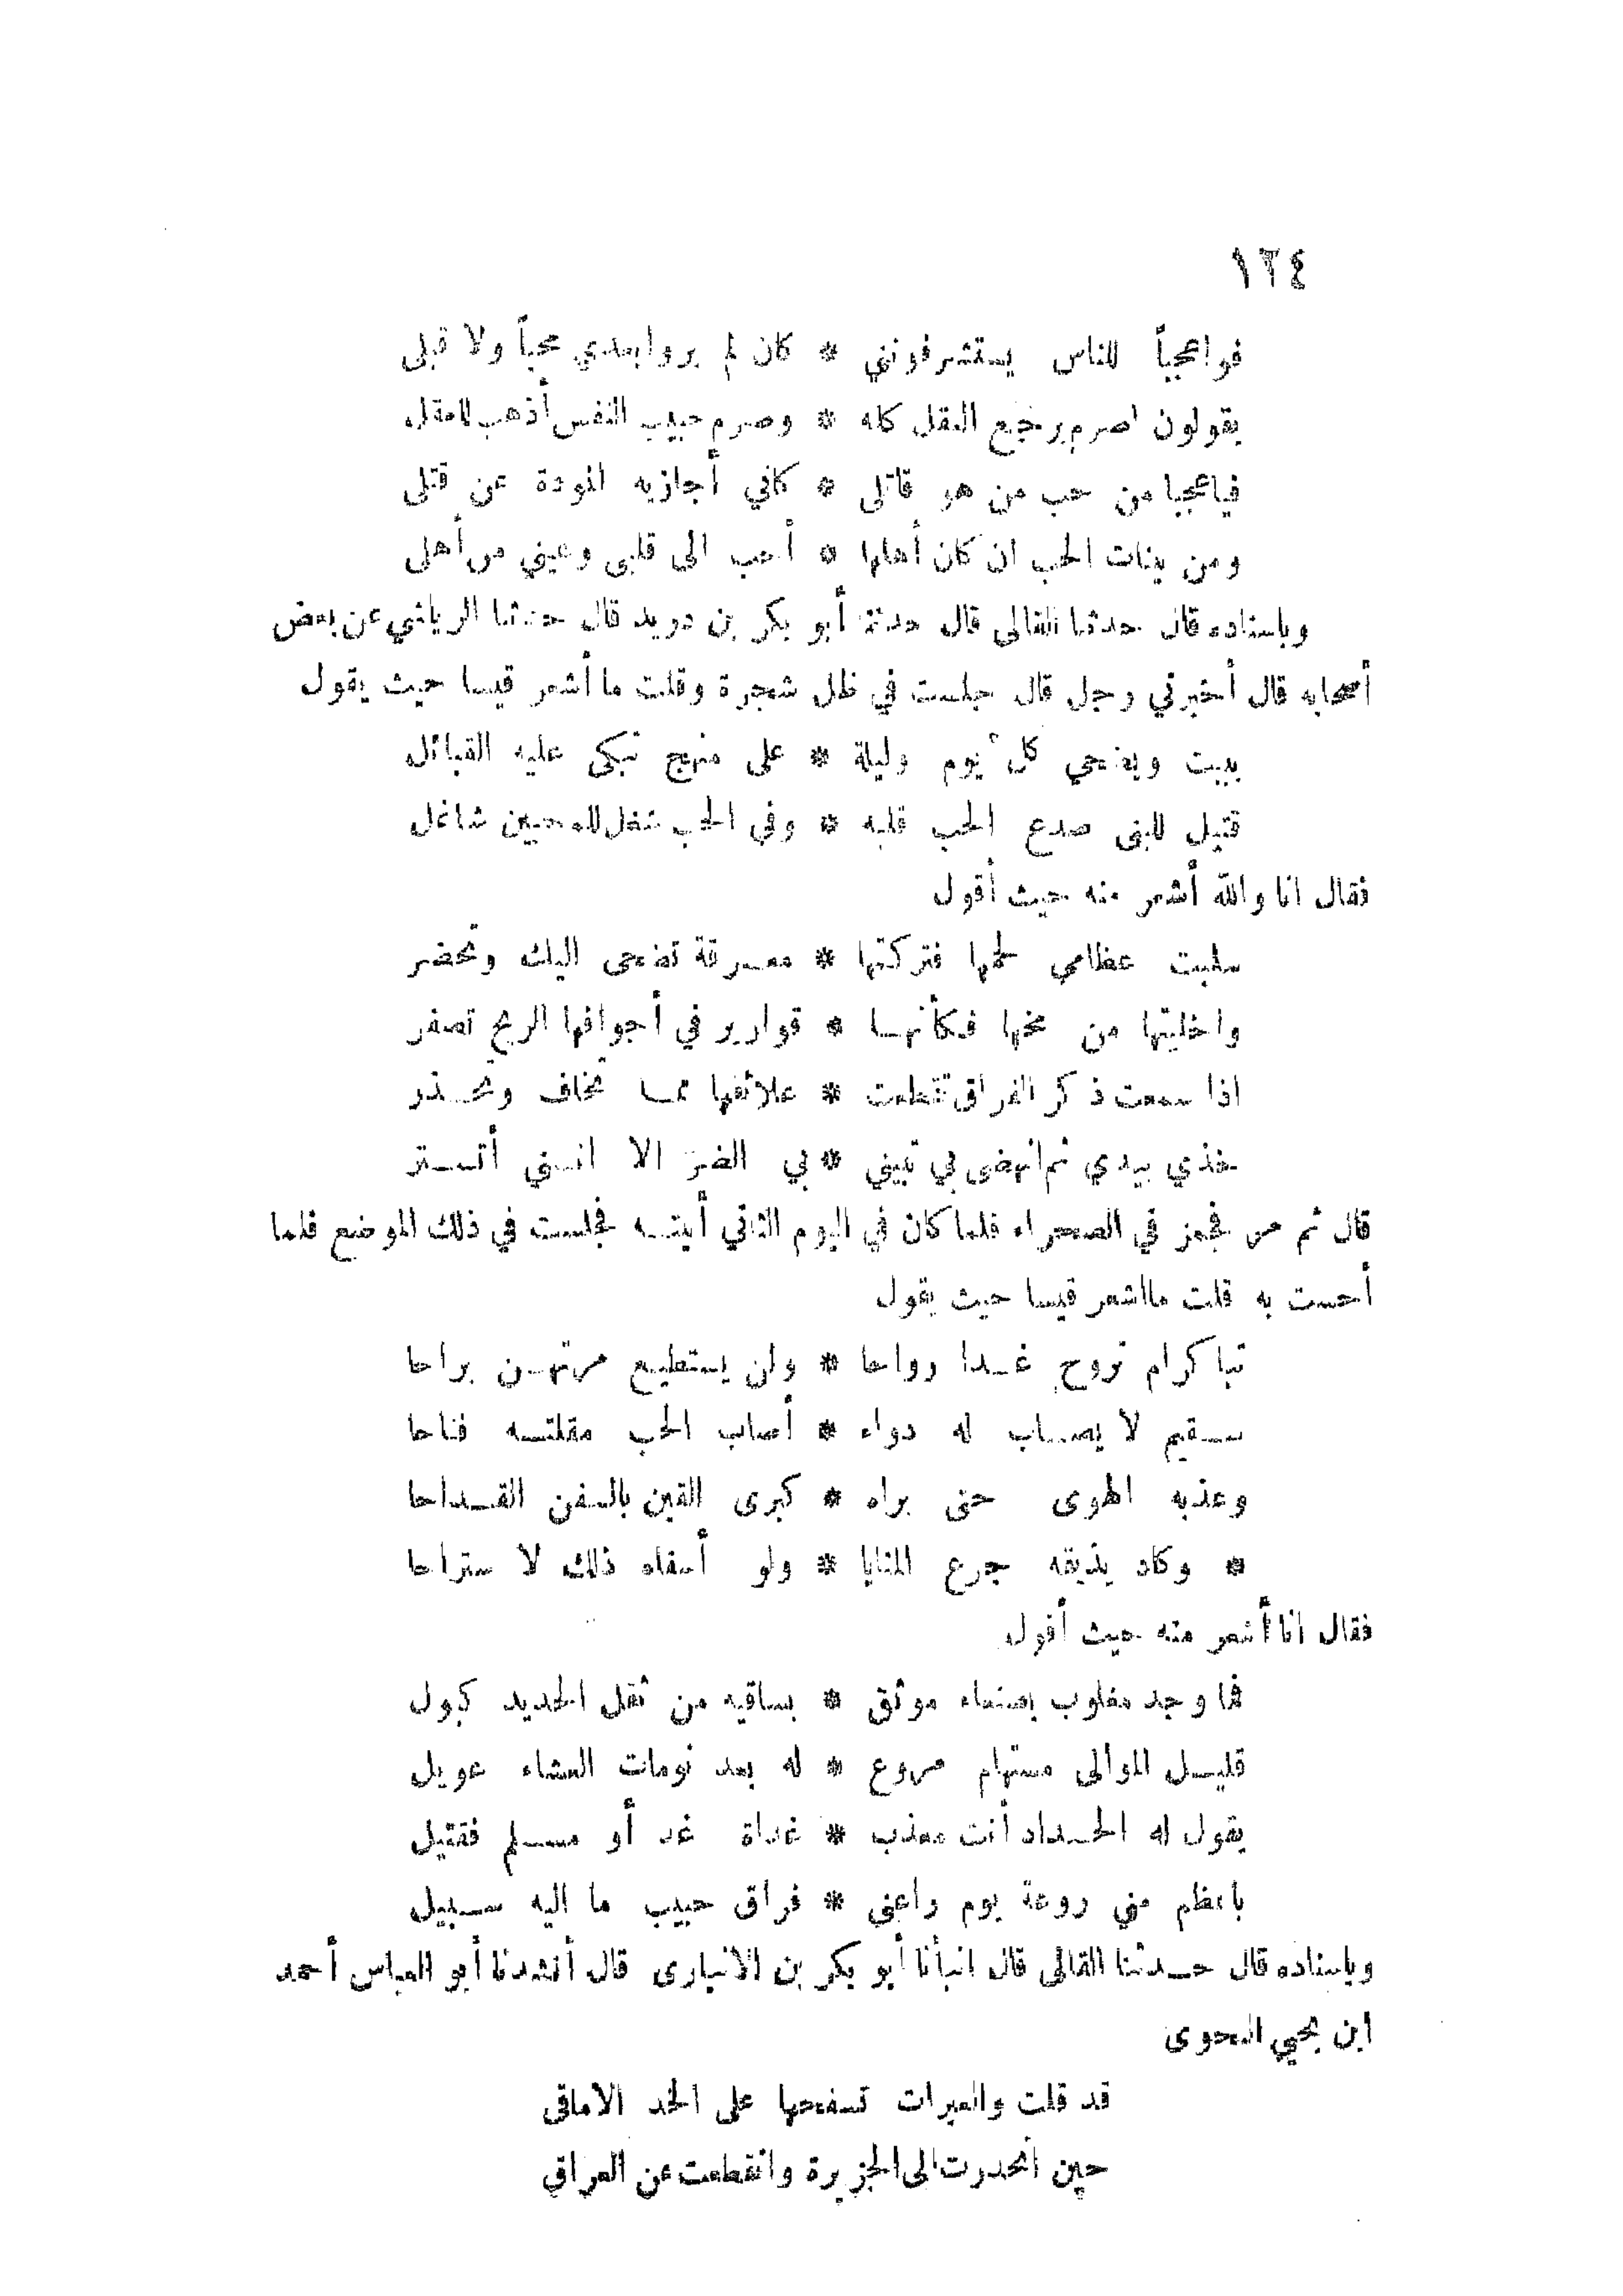 ١٢٤
فواعجباً للناس يستشرفونني * كان لم يروا بعدي محباً ولا قبلى
يقولون اصرم يرجع العقل كله * وصرم حبيب النفس أذهب للعقل
فياعجبا من حب من هو قاتلى * كاني أجازيه المودة عن قتلى
ومن بينات الحب ان كان أهلها * أحب الى قلبى وعيني من أهلى
وباسناده قال حدثنا القالى قال حدثنا أبو بكر بن دريد قال حدثنا الرياشي عن بعض
أصحابه قال أخبرني رجل قال جلست في ظل شجرة وقلت ما أشعر قيسا حيث يقول
يبيت ويضحي كل يوم وليلة * على منهج تبكى عليه القبائل
قتيل للبنى صدع الحب قلبه * وفى الحب شغل للمحبين شاغل
فقال انا والله أشعر منه حيث أقول
سلبت عظامي لحمها فتركتها * معرقة تضحى اليك وتحضر
واخليتها من مخها فكأنها * قوارير في أجوافها الريح تصفر
اذا سمعت ذكر الفراق تقطعت * علائقها مما تخاف وتحذر
خذي بيدي ثم انهضى بي تبيني * بي الضر الا انني أتستر
قال ثم مر فجمز في الصحراء فلما كان في اليوم الثاني أتيته فجلست في ذلك الموضع فلما
أحست به قلت مااشعر قيسا حيث يقول
تباكرام تروح غدا رواحا * ولن يستطيع مرتهن براحا
سقيم لا يصاب له دواء * أصاب الحب مقلته فناحا
وعذبه الهوى حتى براه * كبرى القين بالسفن القداحا
* وكاد يذيقه جرع المنايا * ولو أسقاه ذلك لا ستراحا
فقال انا أشعر منه حيث أقول
فما وجد مغلوب بصنعاء موثق * بساقيه من ثقل الحديد كبول
قليل الموالى مستهام مروع * له بعد نومات العشاء عويل
يقول له الحداد أنت معذب * غداة غد أو مسلم فقتيل
باعظم مني روعة يوم راعنى * فراق حبيب ما اليه سبيل
وباسناده قال حدثنا القالى قال انبأنا أبو بكر بن الانبارى قال أنشدنا أبو العباس أحمد
ابن يحيي النحوى
قد قلت والعبرات تسفحها على الخد الاماقى
حين انحدرت الى الجزيرة وانقطعت عن العراقي